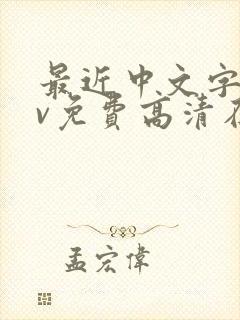 最近中文字
v免费高清在
孟宏偉